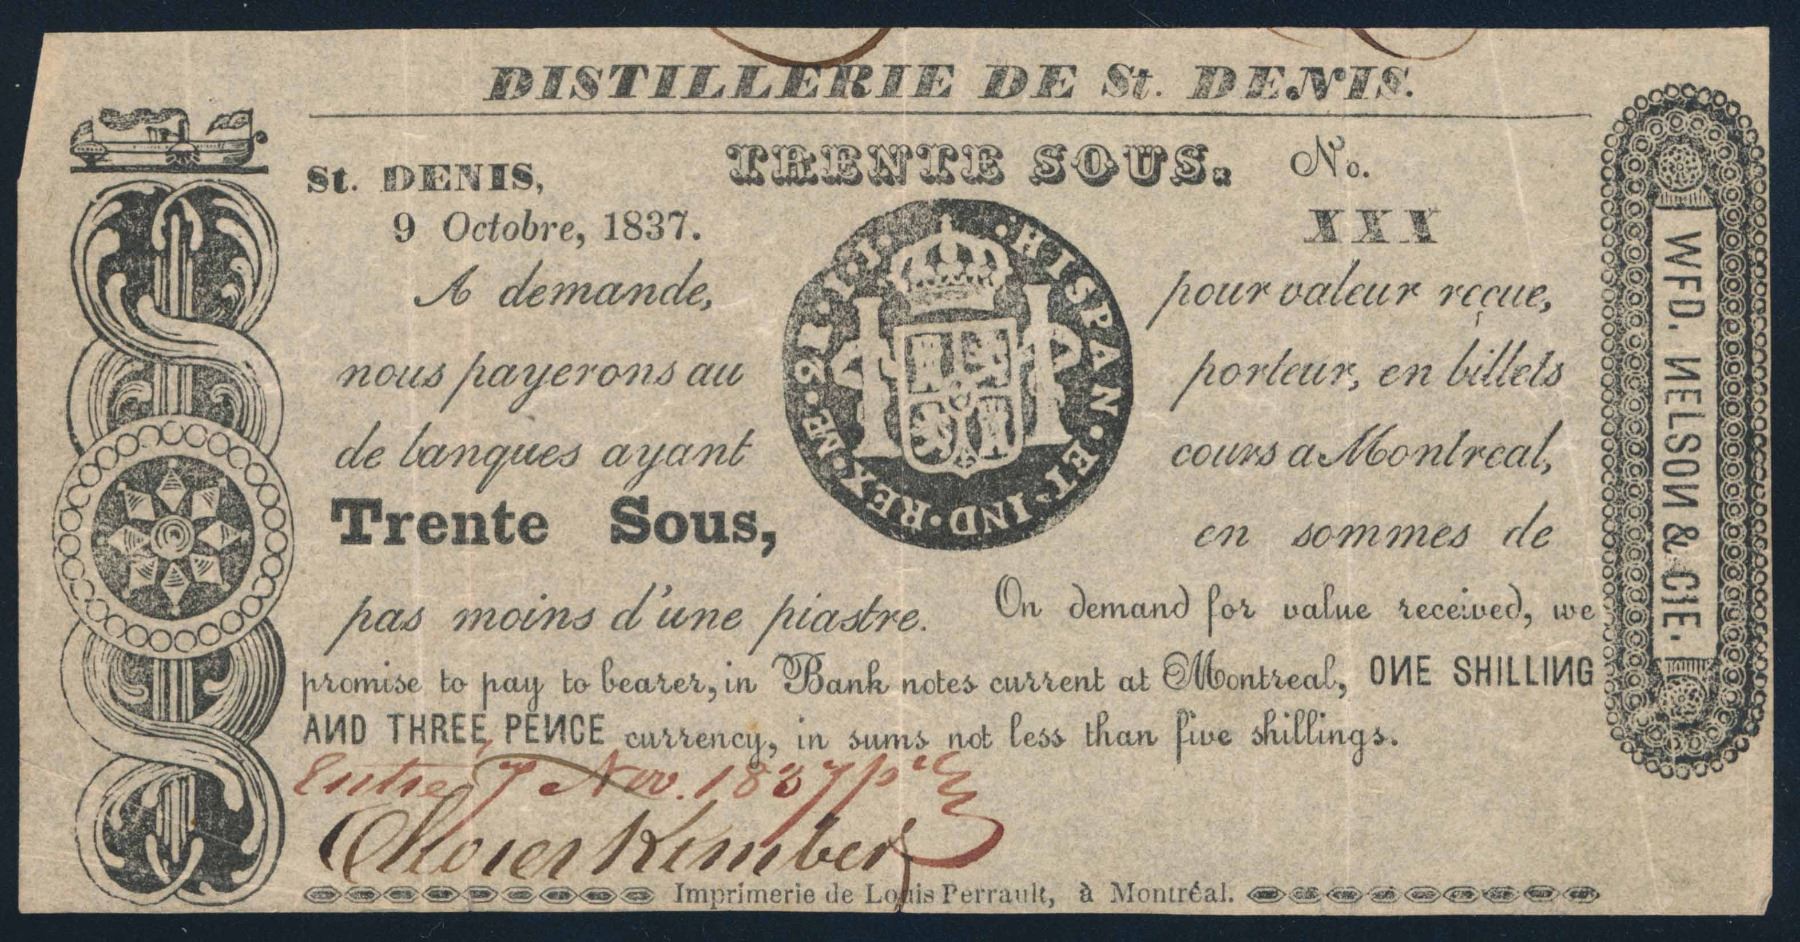 DISTILLERIE DE St. DENIS.
TRENTE SOUS. No.
St. DENIS,
9 Octobre, 1837. XXX
A demande, pour valeur reçue,
nous payerons au porteur, en billets
de banques ayant cours a Montreal,
Trente Sous, en sommes de
pas moins d'une piastre. On demand for value received, we
promise to pay to bearer, in Bank notes current at Montreal, ONE SHILLING
AND THREE PENCE currency, in sums not less than five shillings.
Entré 7 Nov. 1837
Kimber
Imprimerie de Louis Perrault, à Montréal.
HISPAN·ET·IND·REX·
2R
WFD. NELSON & CIE.